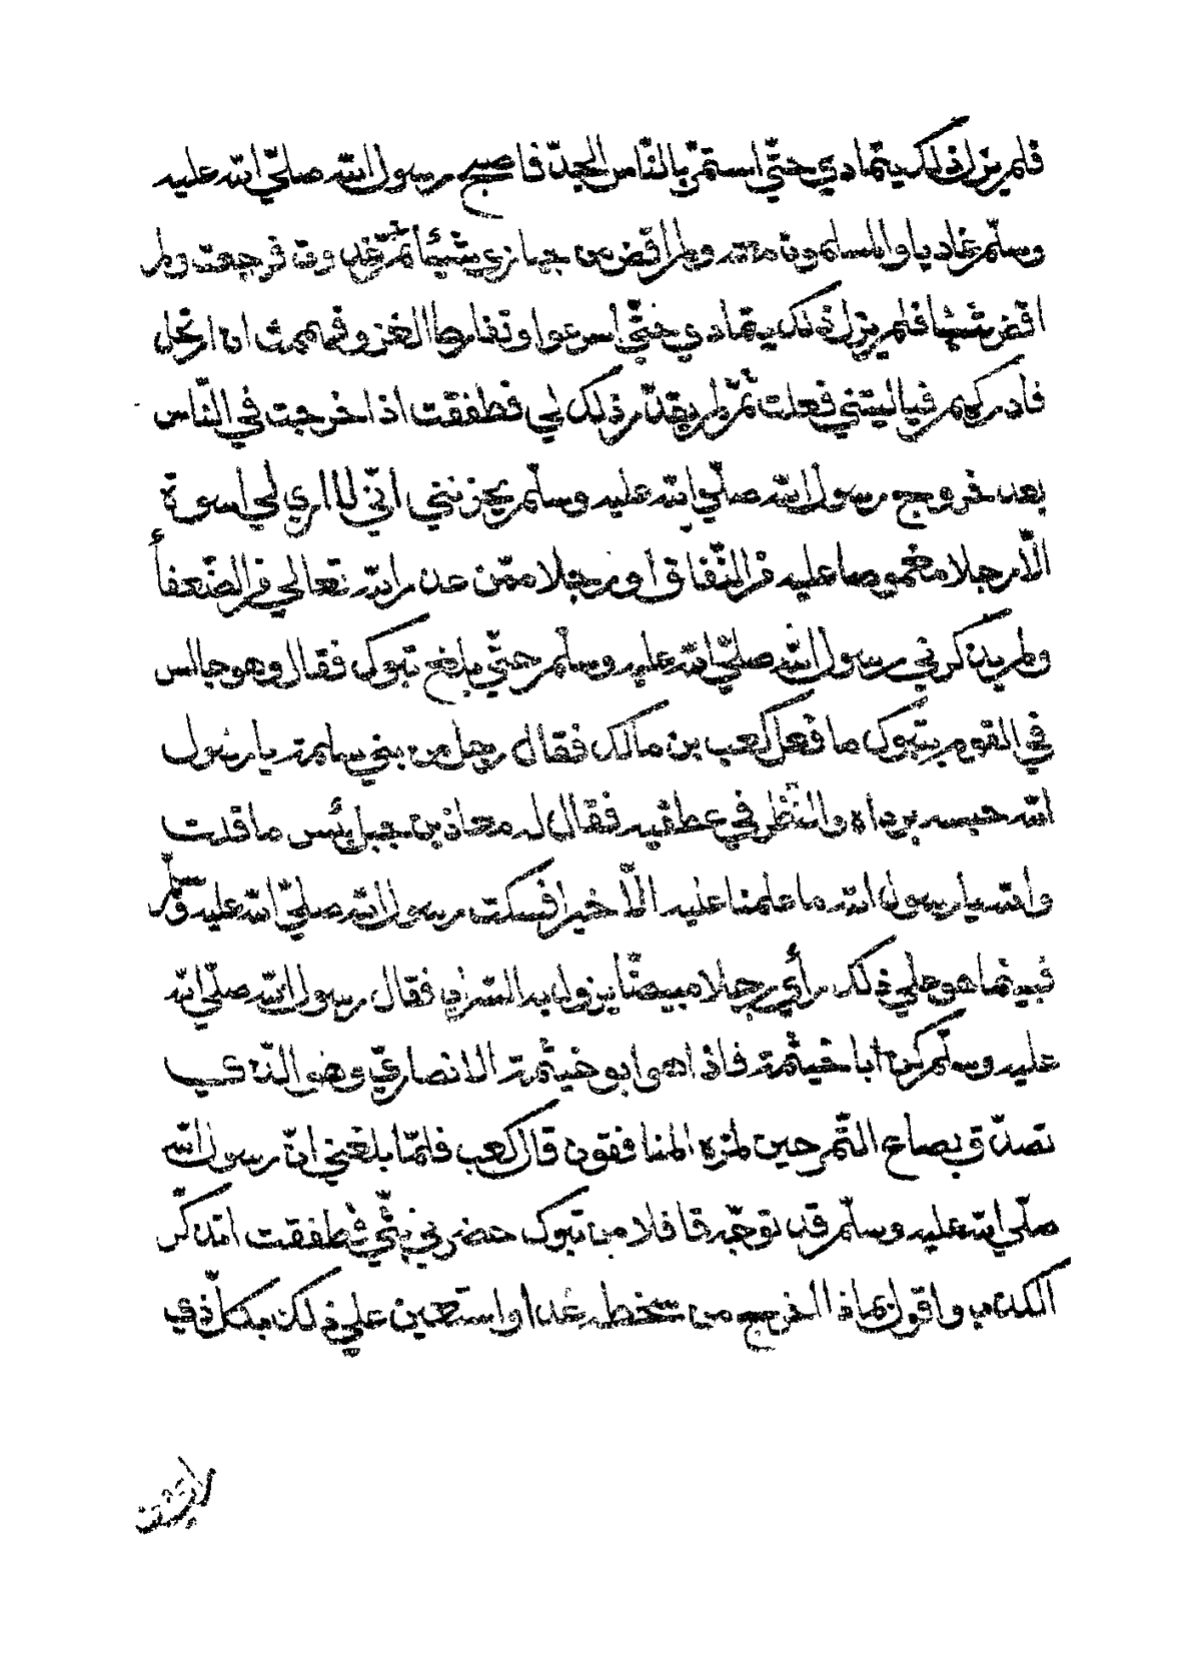 فلم يزل ذلك يتمادي حتّي استمرّ بالنّاس الجدّ فاصبح رسول الله صلّي الله عليه
وسلّم غاديا والمسلمون معه ولم اقض من جهازي شيئا ثمّ غدوت فرجعت ولم
اقض شيئا فلم يزل ذلك يتمادي حتّي اسرعوا وتفارط الغزو فهممت ان ارتحل
فادركهم فياليتني فعلت ثمّ لم يقدّر ذلك لي فطفقت اذا خرجت في النّاس
بعد خروج رسول الله صلّي الله عليه وسلّم يحزنني انّي لا اري لي اسوة
الّا رجلا مغموصا عليه في النّفاق او رجلا ممّن عذر الله تعالي من الضّعفأ
ولم يذكرني رسول الله صلّي الله عليه وسلّم حتّي بلغ تبوك فقال وهو جالس
في القوم بتبوك ما فعل كعب بن مالك فقال رجل من بني سلمة يا رسول
الله حبسه برداه والنّظر في عطفيه فقال له معاذ بن جبل بئس ما قلت
والله يا رسول الله ما علمنا عليه الّا خيرا فسكت رسول الله صلّي الله عليه وسلّم
فبينما هو علي ذلك رأي رجلا مبيضّا يزول به السّراب فقال رسول الله صلّي الله
عليه وسلّم كن أبا خيثمة فاذا هو ابو خيثمة الانصاريّ وهو الّذي
تصدّق بصاع التّمر حين لمزه المنافقون قال كعب فلمّا بلغني انّ رسول الله
صلّي الله عليه وسلّم قد توجّه قافلا من تبوك حضرني بثّي فطفقت اتذكّر
الكذب واقول بماذا اخرج من سخطه غدا واستعين علي ذلك بكلّ ذي